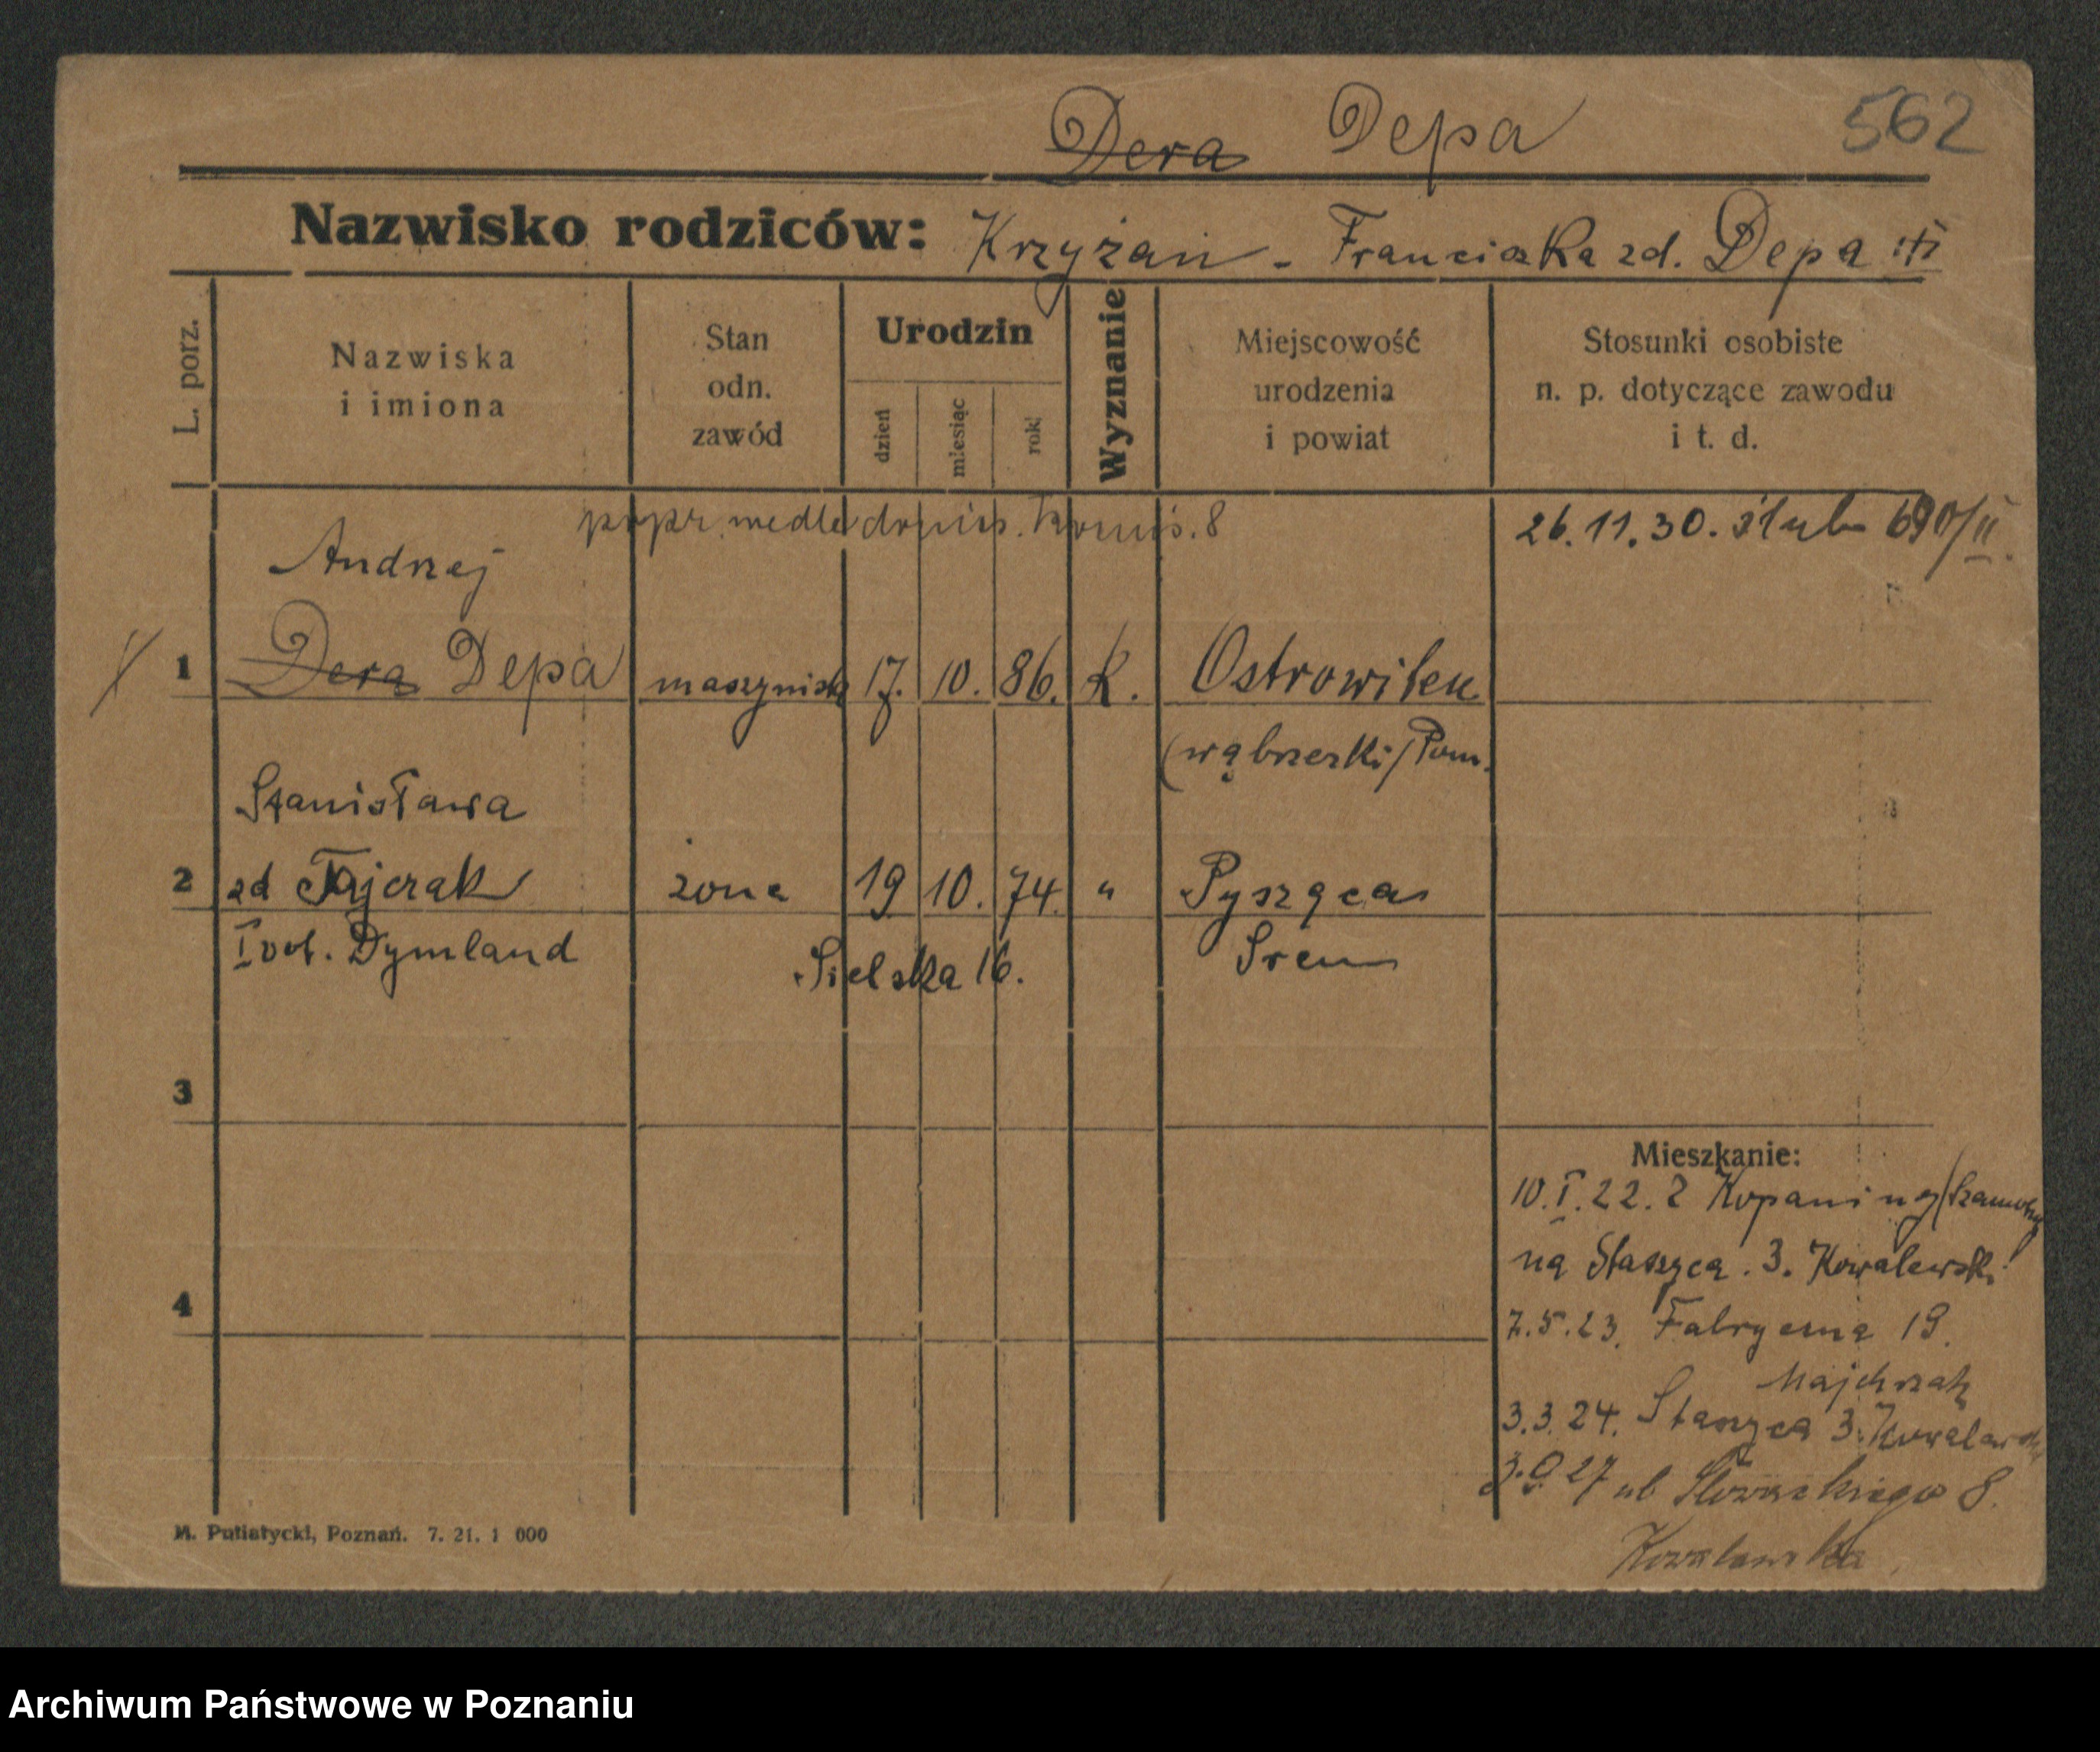 Dera Depa 562
Nazwisko rodziców: Krzyżan - Franciszka zd. Depa
L. porz.
Nazwiska
i imiona
Stan
odn.
zawód
Urodzin
dzień
miesiąc
rok
Wyznanie
Miejscowość
urodzenia
i powiat
Stosunki osobiste
n. p. dotyczące zawodu
i t. d.
popr. wedle donies. Komis. 8
26.11.30. ślub 690/II.
Andrzej
1 Dera Depa maszynista 17. 10. 86. K. Ostrowiten
(wąbrzeski/Pom.
Stanisława
2 zd Tajcrak żona 19 10. 74. " Pysząca
I vot. Dymland Śrem
Sielska 16.
3
Mieszkanie:
10.I.22. z Kopaniny
na Staszyca. 3. Kowalewski
4
7.5.23. Fabryczna 19.
Majchrzak
3.3.24. Staszyca 3. Kowalewski
3.9.27 ul Słowackiego 8.
Kowalewska
M. Putiatycki, Poznań. 7. 21. 1 000
Archiwum Państwowe w Poznaniu